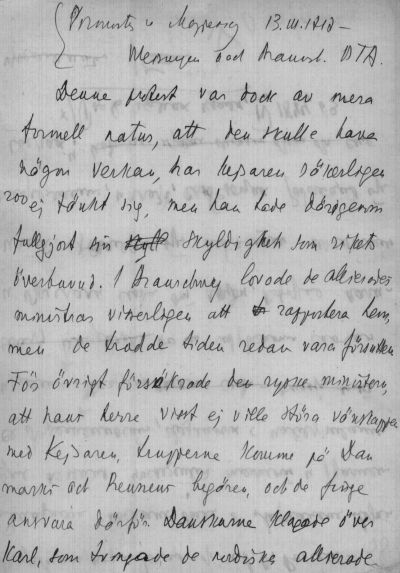 13.III.1713 –
Denne protest var dock av mera
formell natur, att den skulle hava
någon verkan, har kejsaren säkerligen
200 ej tänkt sig, men han hade därigenom
fullgjort sin skyldighet som rikets
överhuvud. I Braunschweig lovade de allierades
ministrar visserligen att rapportera hem,
men de trodde tiden redan vara försutten
För övrigt försäkrade den ryske ministern,
att hans herre visst ej ville störa vänskapen
med Kejsaren, trupperna komme på Dan
marks och begäran, och de finge
ansvara därför. Danskarne klagade över
Karl, som tvingade de nordiska allierade